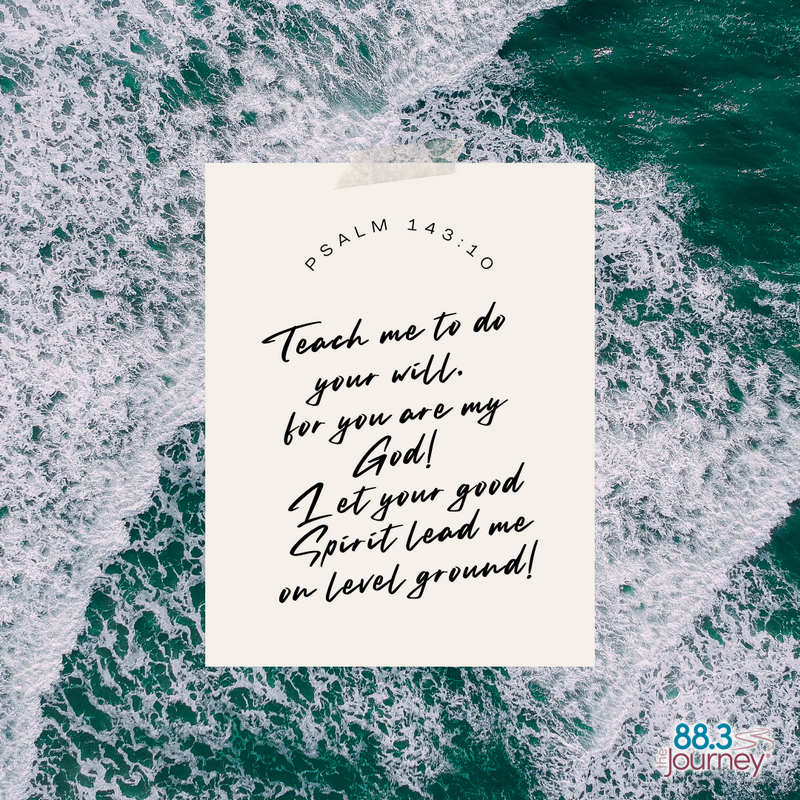 PSALM 143:10
Teach me to do
your will.
for you are my
God!
Let your good
Spirit lead me
on level ground!
88.3
the Journey